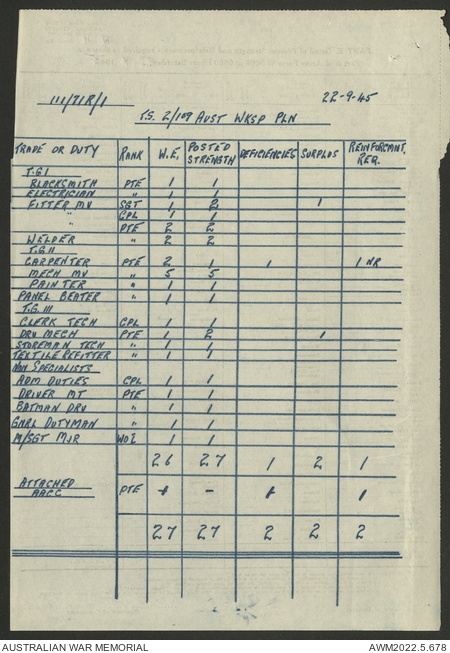 111/71R/1
22-9-45
T.S. 2/109 AUST WKSP PLN
TRADE OR DUTY RANK W.E. POSTED STRENGTH DEFICIENCIES SURPLUS REINFORCMNT. REQ.
T.G.I
BLACKSMITH PTE 1 1
ELECTRICIAN " 1 1
FITTER MV SGT 1 2 1
" CPL 1 1
PTE 2 2
WELDER " 2 2
T.G. II
CARPENTER PTE 2 1 1 1 NR
MECH MV " 5 5
PAINTER " 1 1
PANEL BEATER " 1 1
T.G. III
CLERK TECH CPL 1 1
DRV MECH PTE 1 2 1
STOREMAN TECH " 1 1
TEXTILE REFITTER " 1 1
NON SPECIALISTS
ADM DUTIES CPL 1 1
DRIVER MT PTE 1 1
BATMAN DRV " 1 1
GNRL DUTYMAN " 1 1
M/SGT MJR WO2 1 1
26 27 1 2 1
ATTACHED
AACC PTE 1 - 1 1
27 27 2 2 2
AUSTRALIAN WAR MEMORIAL
AWM2022.5.678